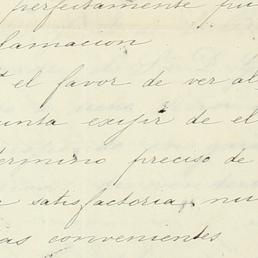 perfectamente pu
lamacion
el favor de ver al
unta exijir de el
termino preciso de
satisfactoria, nu
as convenientes